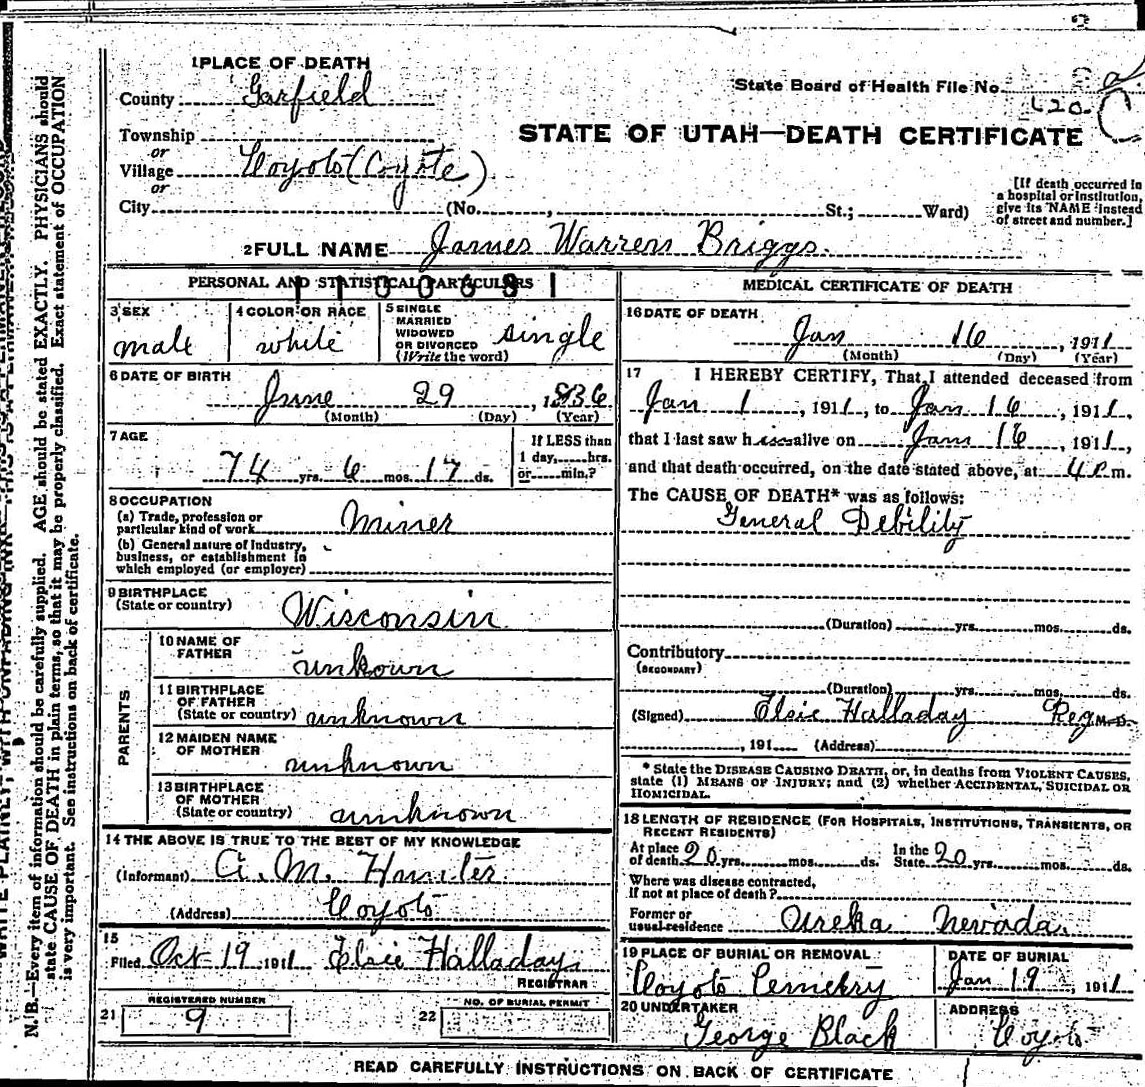 1 PLACE OF DEATH
County Garfield
State Board of Health File No.
Township
or
Village Coyoto (Coyote)
or
City (No. , St.; Ward)
STATE OF UTAH—DEATH CERTIFICATE
[If death occurred in
a hospital or institution,
give its NAME instead
of street and number.]
2 FULL NAME James Warren Briggs.
PERSONAL AND STATISTICAL PARTICULARS
3 SEX
male
4 COLOR OR RACE
white
5 SINGLE
MARRIED
WIDOWED
OR DIVORCED
(Write the word)
single
6 DATE OF BIRTH
June 29, 1836
(Month) (Day) (Year)
7 AGE
74 yrs. 6 mos. 17 ds.
If LESS than
1 day, hrs.
or min.?
8 OCCUPATION
(a) Trade, profession or
particular kind of work Miner
(b) General nature of Industry,
business, or establishment in
which employed (or employer)
9 BIRTHPLACE
(State or country) Wisconsin
PARENTS
10 NAME OF
FATHER unkown
11 BIRTHPLACE
OF FATHER
(State or country) unknown
12 MAIDEN NAME
OF MOTHER unknown
13 BIRTHPLACE
OF MOTHER
(State or country) unknown
14 THE ABOVE IS TRUE TO THE BEST OF MY KNOWLEDGE
(Informant) A. M. Hunter
(Address) Coyoto
15
Filed Oct 19 1911 Elsie Halladay
REGISTRAR
REGISTERED NUMBER
21 9
NO. OF BURIAL PERMIT
22
MEDICAL CERTIFICATE OF DEATH
16 DATE OF DEATH
Jan 16, 1911
(Month) (Day) (Year)
17 I HEREBY CERTIFY, That I attended deceased from
Jan 1, 1911, to Jan 16, 1911,
that I last saw him alive on Jan 16, 1911,
and that death occurred, on the date stated above, at 4 P. m.
The CAUSE OF DEATH* was as follows:
General Debility
(Duration) yrs. mos. ds.
Contributory
(SECONDARY)
(Duration) yrs. mos. ds.
(Signed) Elsie Halladay Reg M.D.
, 191 (Address)
* State the DISEASE CAUSING DEATH, or, in deaths from VIOLENT CAUSES,
state (1) MEANS OF INJURY; and (2) whether ACCIDENTAL, SUICIDAL OR
HOMICIDAL.
18 LENGTH OF RESIDENCE (FOR HOSPITALS, INSTITUTIONS, TRANSIENTS, OR
RECENT RESIDENTS)
At place
of death 20 yrs. mos. ds.
In the
State 20 yrs. mos. ds.
Where was disease contracted,
If not at place of death?
Former or
usual residence Ureka Nevada.
19 PLACE OF BURIAL OR REMOVAL
Coyoto Cemetry
DATE OF BURIAL
Jan 19, 1911
20 UNDERTAKER
George Black
ADDRESS
Coyoto
READ CAREFULLY INSTRUCTIONS ON BACK OF CERTIFICATE
N. B.—Every item of information should be carefully supplied. AGE should be stated EXACTLY. PHYSICIANS should
state CAUSE OF DEATH in plain terms, so that it may be properly classified. Exact statement of OCCUPATION
is very important. See instructions on back of certificate.